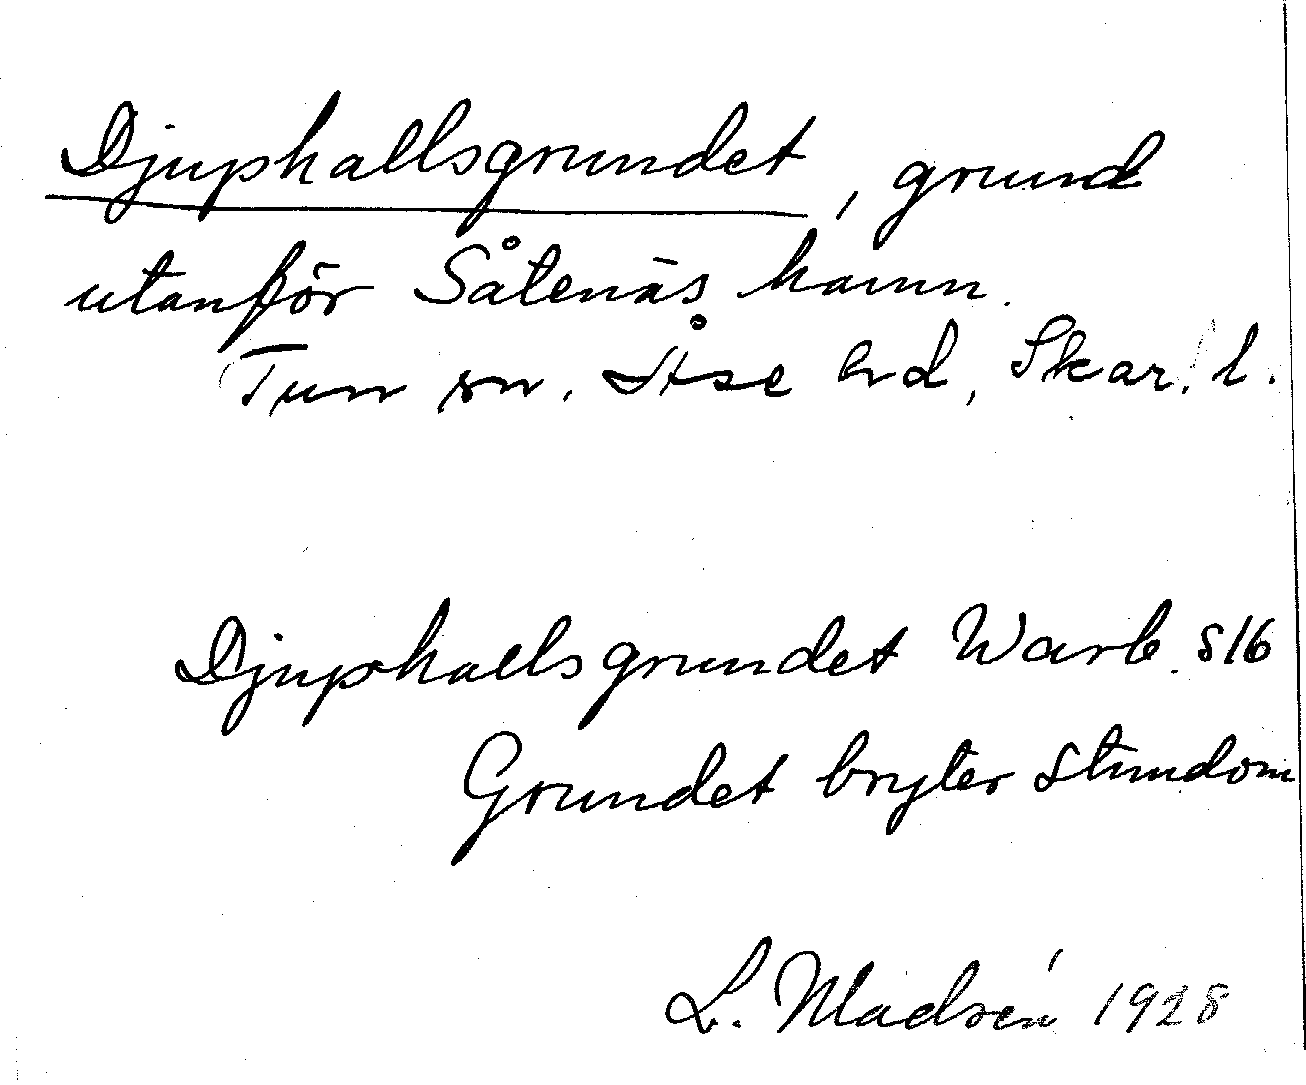 Djuphallsgrundet, grund
utanför Såtenäs hamn.
Tun sn. Åse hd, Skar. l.
Djuphallsgrundet Warb. S16
Grundet bryter stundom
L. Madsén 1928